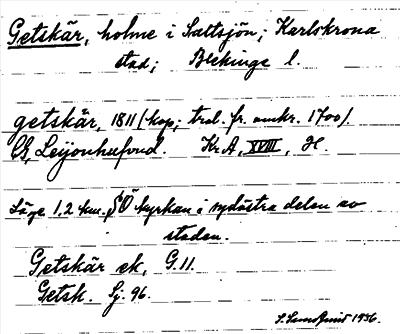 Getskär, holme i Saltsjön; Karlskrona
stad; Blekinge l.
getskär, 1811 (kop; trol. fr. omkr. 1700).
CA, Leijonhufvud. KrA, XVIII, H.
Läge 1,2 km. SO kyrkan i sydöstra delen av
staden.
Getskär ek, G.11.
Getsk. Sj. 96.
1936.